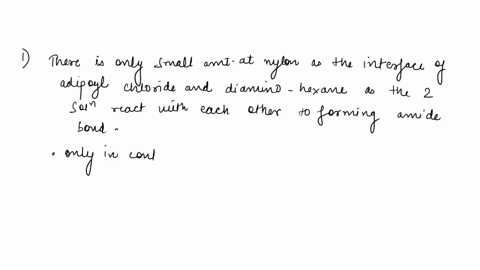 1) There is only small amt. at nylon as the interface of
adipoyl chloride and diamino-hexane as the 2
solⁿ react with each other to forming amide
bond.
. only in cont